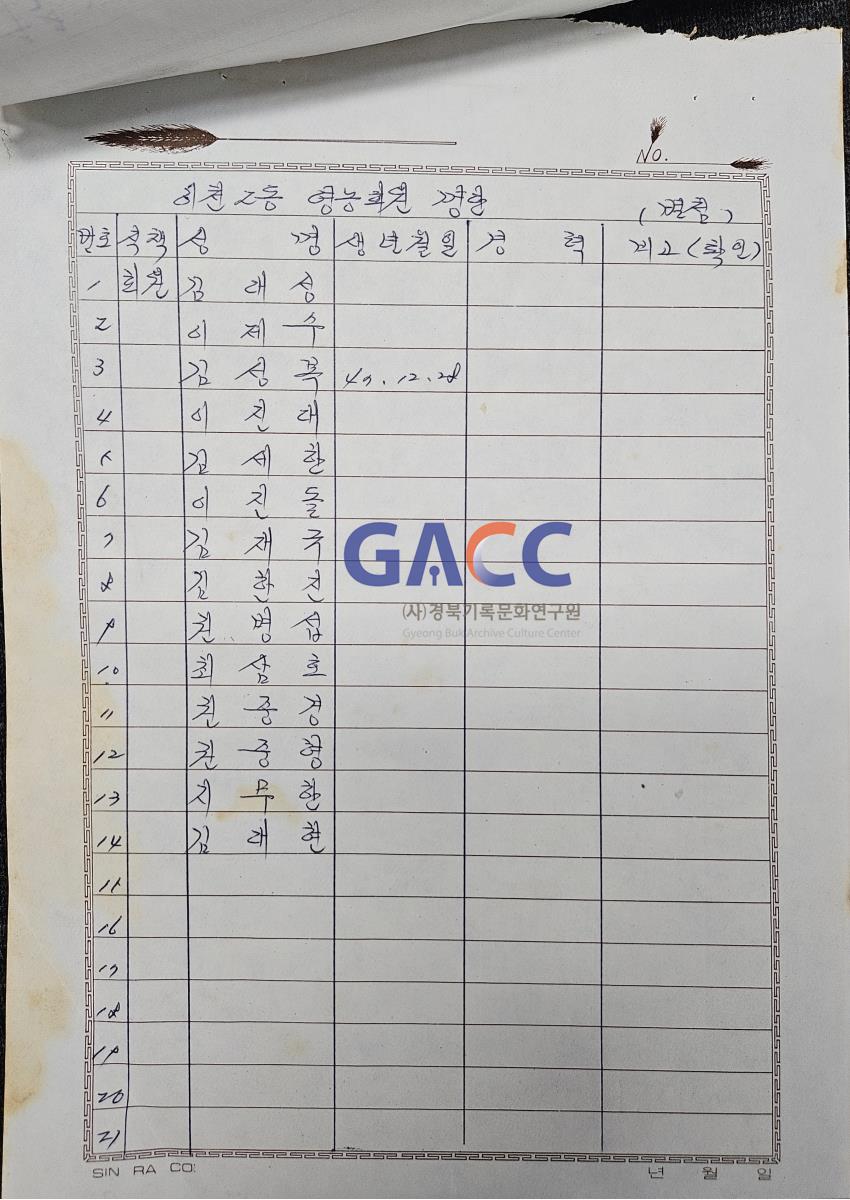 No.
이천2동 영농회원 명단
(별첨)
번호 직책 성 명 생년월일 경 력 비고(확인)
1 회원 김 대 성
2 이 제 수
3 김 성 목 47.12.28
4 이 진 대
5 김 세 한
6 이 진 돌
7 김 재 국
8 김 한 진
9 권 병 섭
10 최 삼 호
11 권 중 경
12 권 중 형
13 지 무 한
14 김 대 현
15
16
17
18
19
20
21
GACC
(사)경북기록문화연구원
Gyeong Buk Archive Culture Center
SIN RA CO:
년 월 일